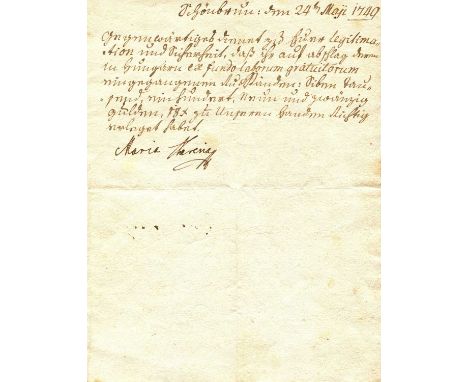 Schönbrun: den 24t. Maji 1749
Gegenwärtiges dienet zu Eurer legitima-
tion und Sicherheit, daß Ihr auf abschlag deren
in Hungarn ex fundo laborum gratuitorum
eingegangenen Ausständen: Siben tau-
send, ein hundert, Neun und zwanzig
gulden, zu Unseren handen Richtig
erleget habet.
Maria Theresia